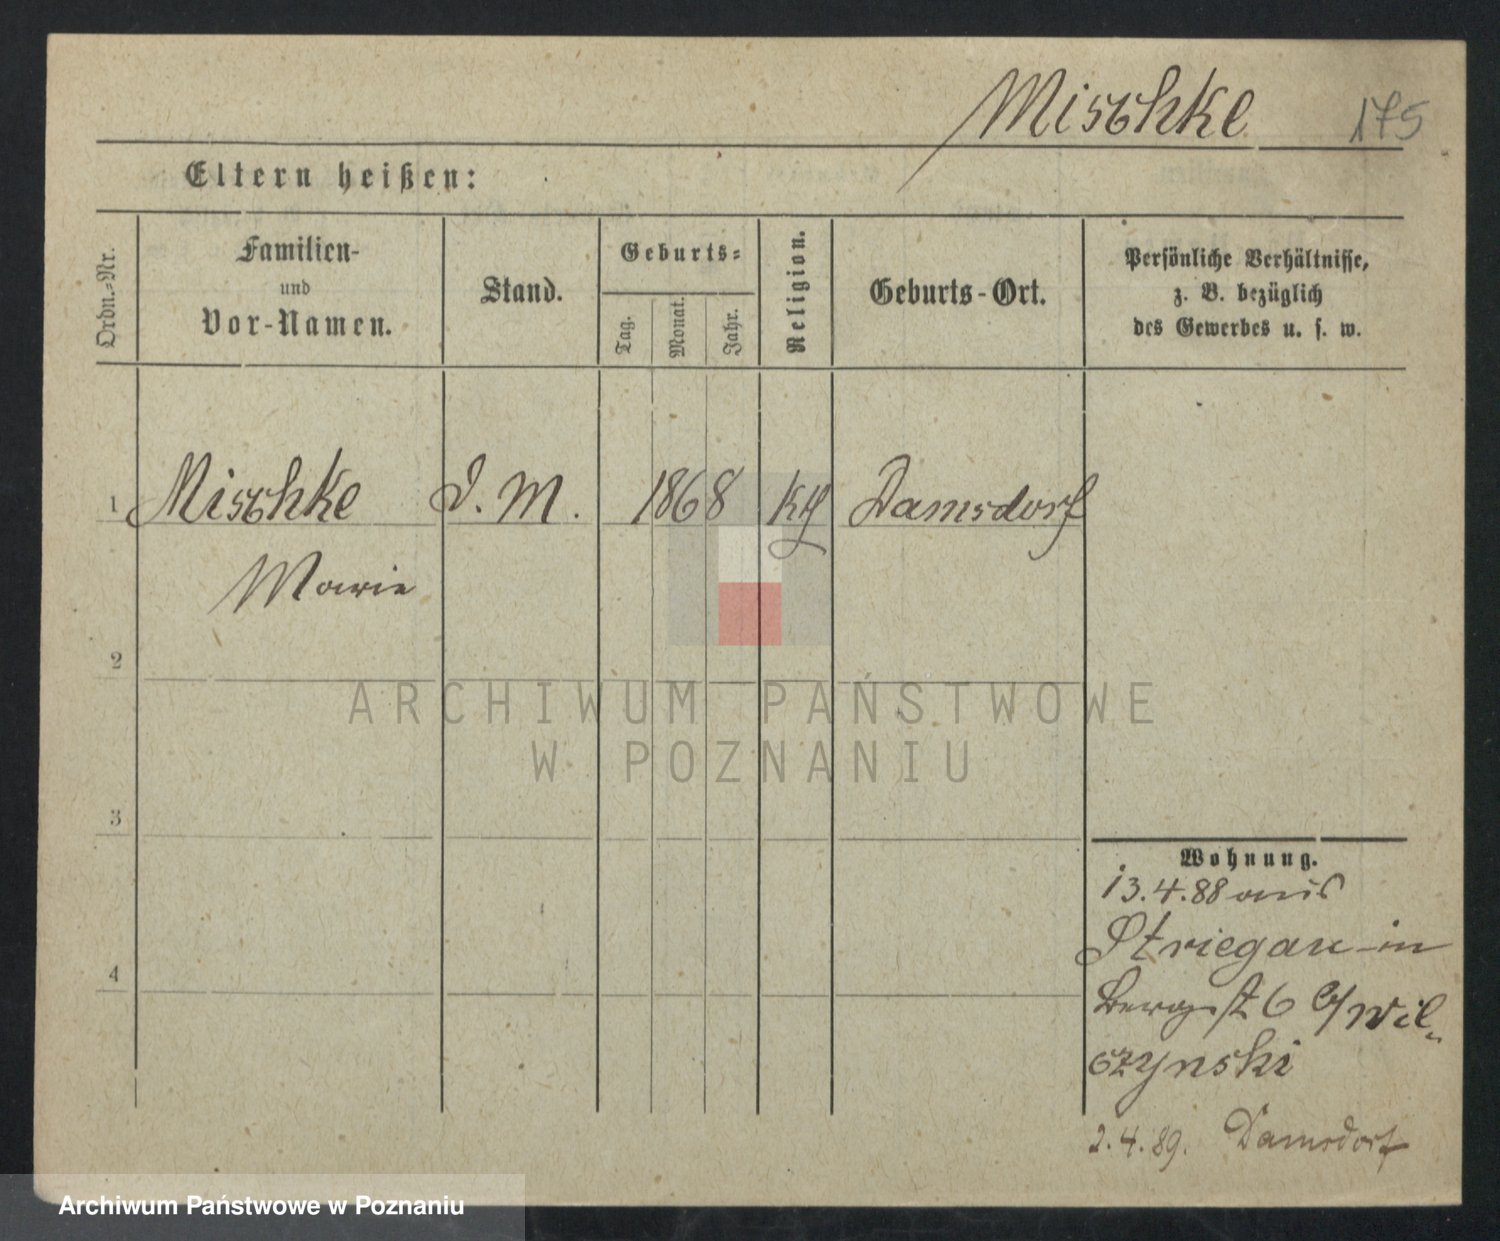 Mischke 175
Eltern heißen:
Ordn.=Nr.
Familien-
und
Vor-Namen.
Stand.
Geburts=
Tag.
Monat.
Jahr.
Religion.
Geburts-Ort.
Persönliche Verhältnisse,
z. B. bezüglich
des Gewerbes u. s. w.
1 Mischke D. M. 1868 Kth Damsdorf
Marie
2
3
4
Wohnung.
13.4.88 aus
Striegau in
Bergst 6 b/Wil-
czynski
2.4.89. Damsdorf
ARCHIWUM PAŃSTWOWE
W POZNANIU
Archiwum Państwowe w Poznaniu